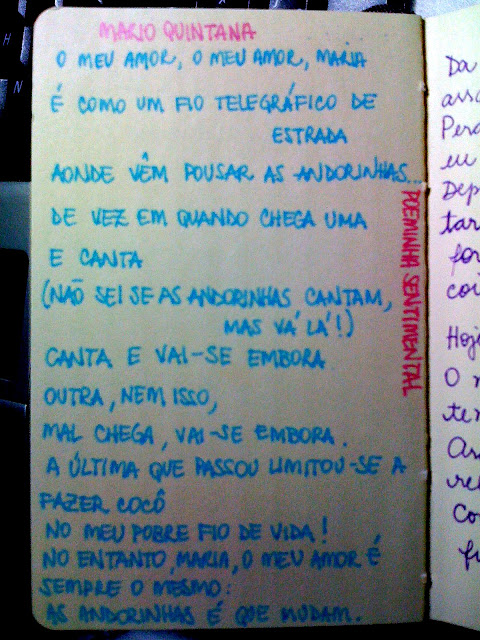 MARIO QUINTANA
O MEU AMOR, O MEU AMOR, MARIA
É COMO UM FIO TELEGRÁFICO DE
ESTRADA
AONDE VÊM POUSAR AS ANDORINHAS...
DE VEZ EM QUANDO CHEGA UMA
E CANTA
(NÃO SEI SE AS ANDORINHAS CANTAM,
MAS VÁ LÁ!)
CANTA E VAI-SE EMBORA
OUTRA, NEM ISSO,
MAL CHEGA, VAI-SE EMBORA.
A ÚLTIMA QUE PASSOU LIMITOU-SE A
FAZER COCÔ
NO MEU POBRE FIO DE VIDA!
NO ENTANTO, MARIA, O MEU AMOR É
SEMPRE O MESMO:
AS ANDORINHAS É QUE MUDAM.
POEMINHA SENTIMENTAL
Da
eu
Dep
tar
for
coi
Hoje
O
ter
Co